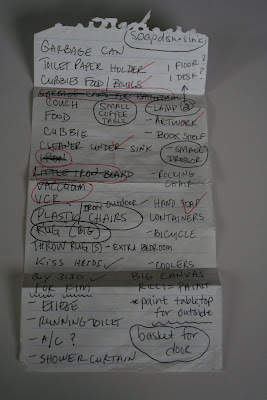 soapdish @ sink
GARBAGE CAN
TOILET PAPER HOLDER
1 FLOOR?
CUBBIES FOOD / BOWLS
1 DESK?
GARBAGE CANS FOR BATHROOM
COUCH
SMALL COFFEE TABLE
LAMP 2
FOOD
- ARTWORK
CUBBIE
- BOOK SHELF
CLEANER UNDER SINK
- SMALL DRESSER
IRON
LITTLE IRON BOARD
- ROCKING CHAIR
VACUUM
VCR
outdoor
- HAND SOAP
PLASTIC CHAIRS
CONTAINERS
RUG (BIG)
- BICYCLE
THROW RUG(S) - EXTRA BEDROOM
KISS
- COOLERS
BUY
BIG CANVAS
FOR KIM
RICCI = PAINT
* paint tabletop for outside
- RUNNING TOILET
- A/C ?
basket for door
- SHOWER CURTAIN